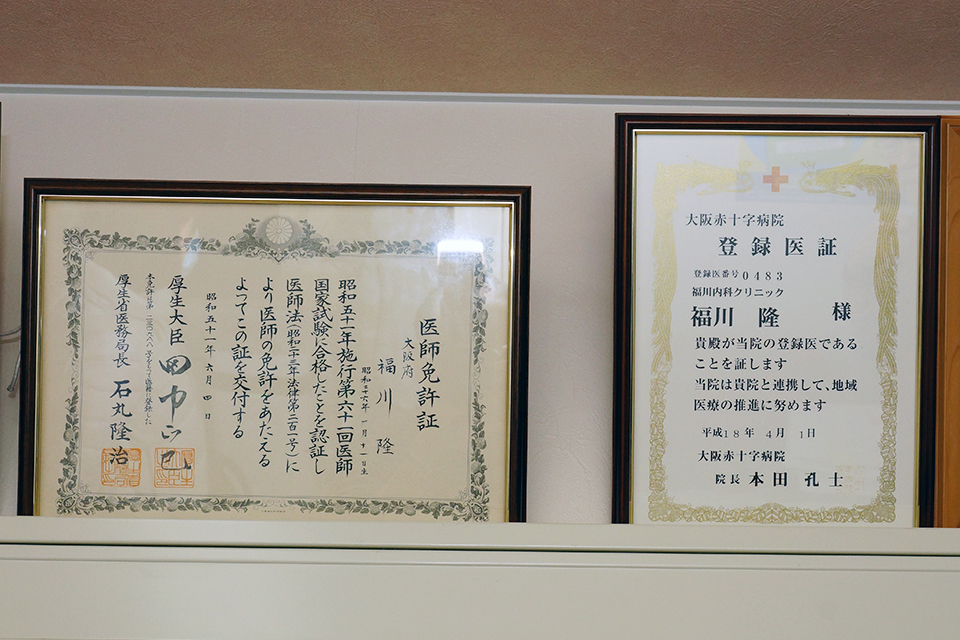 医師免許証
大阪府
福川 隆
昭和二十六年一月十一日生
昭和五十一年施行第六十一回医師
国家試験に合格したことを認証し
医師法(昭和二十三年法律第二百一号)に
より医師の免許をあたえる
よってこの証を交付する
昭和五十一年六月四日
厚生大臣 田中正巳
本免許は第二三〇八八八号をもって医籍に登録した
厚生省医務局長 石丸隆治
大阪赤十字病院
登録医証
登録医番号0483
福川内科クリニック
福川 隆 様
貴殿が当院の登録医である
ことを証します
当院は貴院と連携して、地域
医療の推進に努めます
平成18年 4月 1日
大阪赤十字病院
院長 本田 孔士